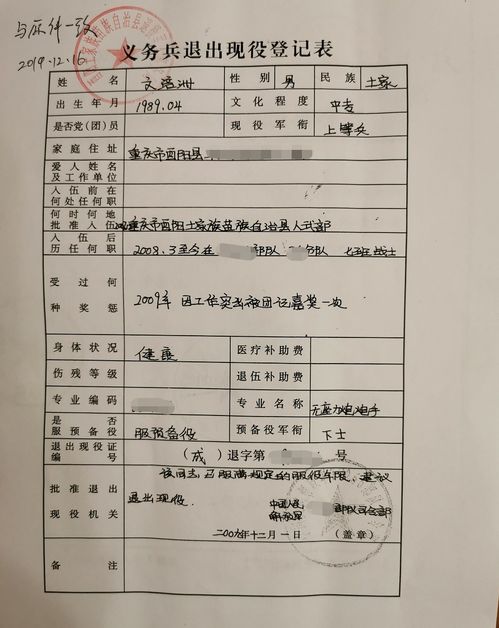 与原件一致
2019.12.16
义务兵退出现役登记表
姓名 性别 男 民族 土家
出生年月 1989.04 文化程度 中专
是否党(团)员 现役军衔 上等兵
家庭住址 重庆市酉阳县
爱人姓名及工作单位
入伍前在何处任何职
何时何地批准入伍 重庆市酉阳土家族苗族自治县人武部
入伍后历任何职 2008.3至今在 部队 部队 七班战士
受过何种奖惩 2009年 因工作突出被团记嘉奖一次
身体状况 健康 医疗补助费
伤残等级 退伍补助费
专业编码 专业名称 无座力炮炮手
是否服预备役 服预备役 预备役军衔 下士
退出现役证编号 (成)退字第 号
批准退出现役机关 该同志已服满规定的服役年限,建议
退出现役.
中国人民
解放军 部队司令部
二00九年十二月一日 (盖章)
备注